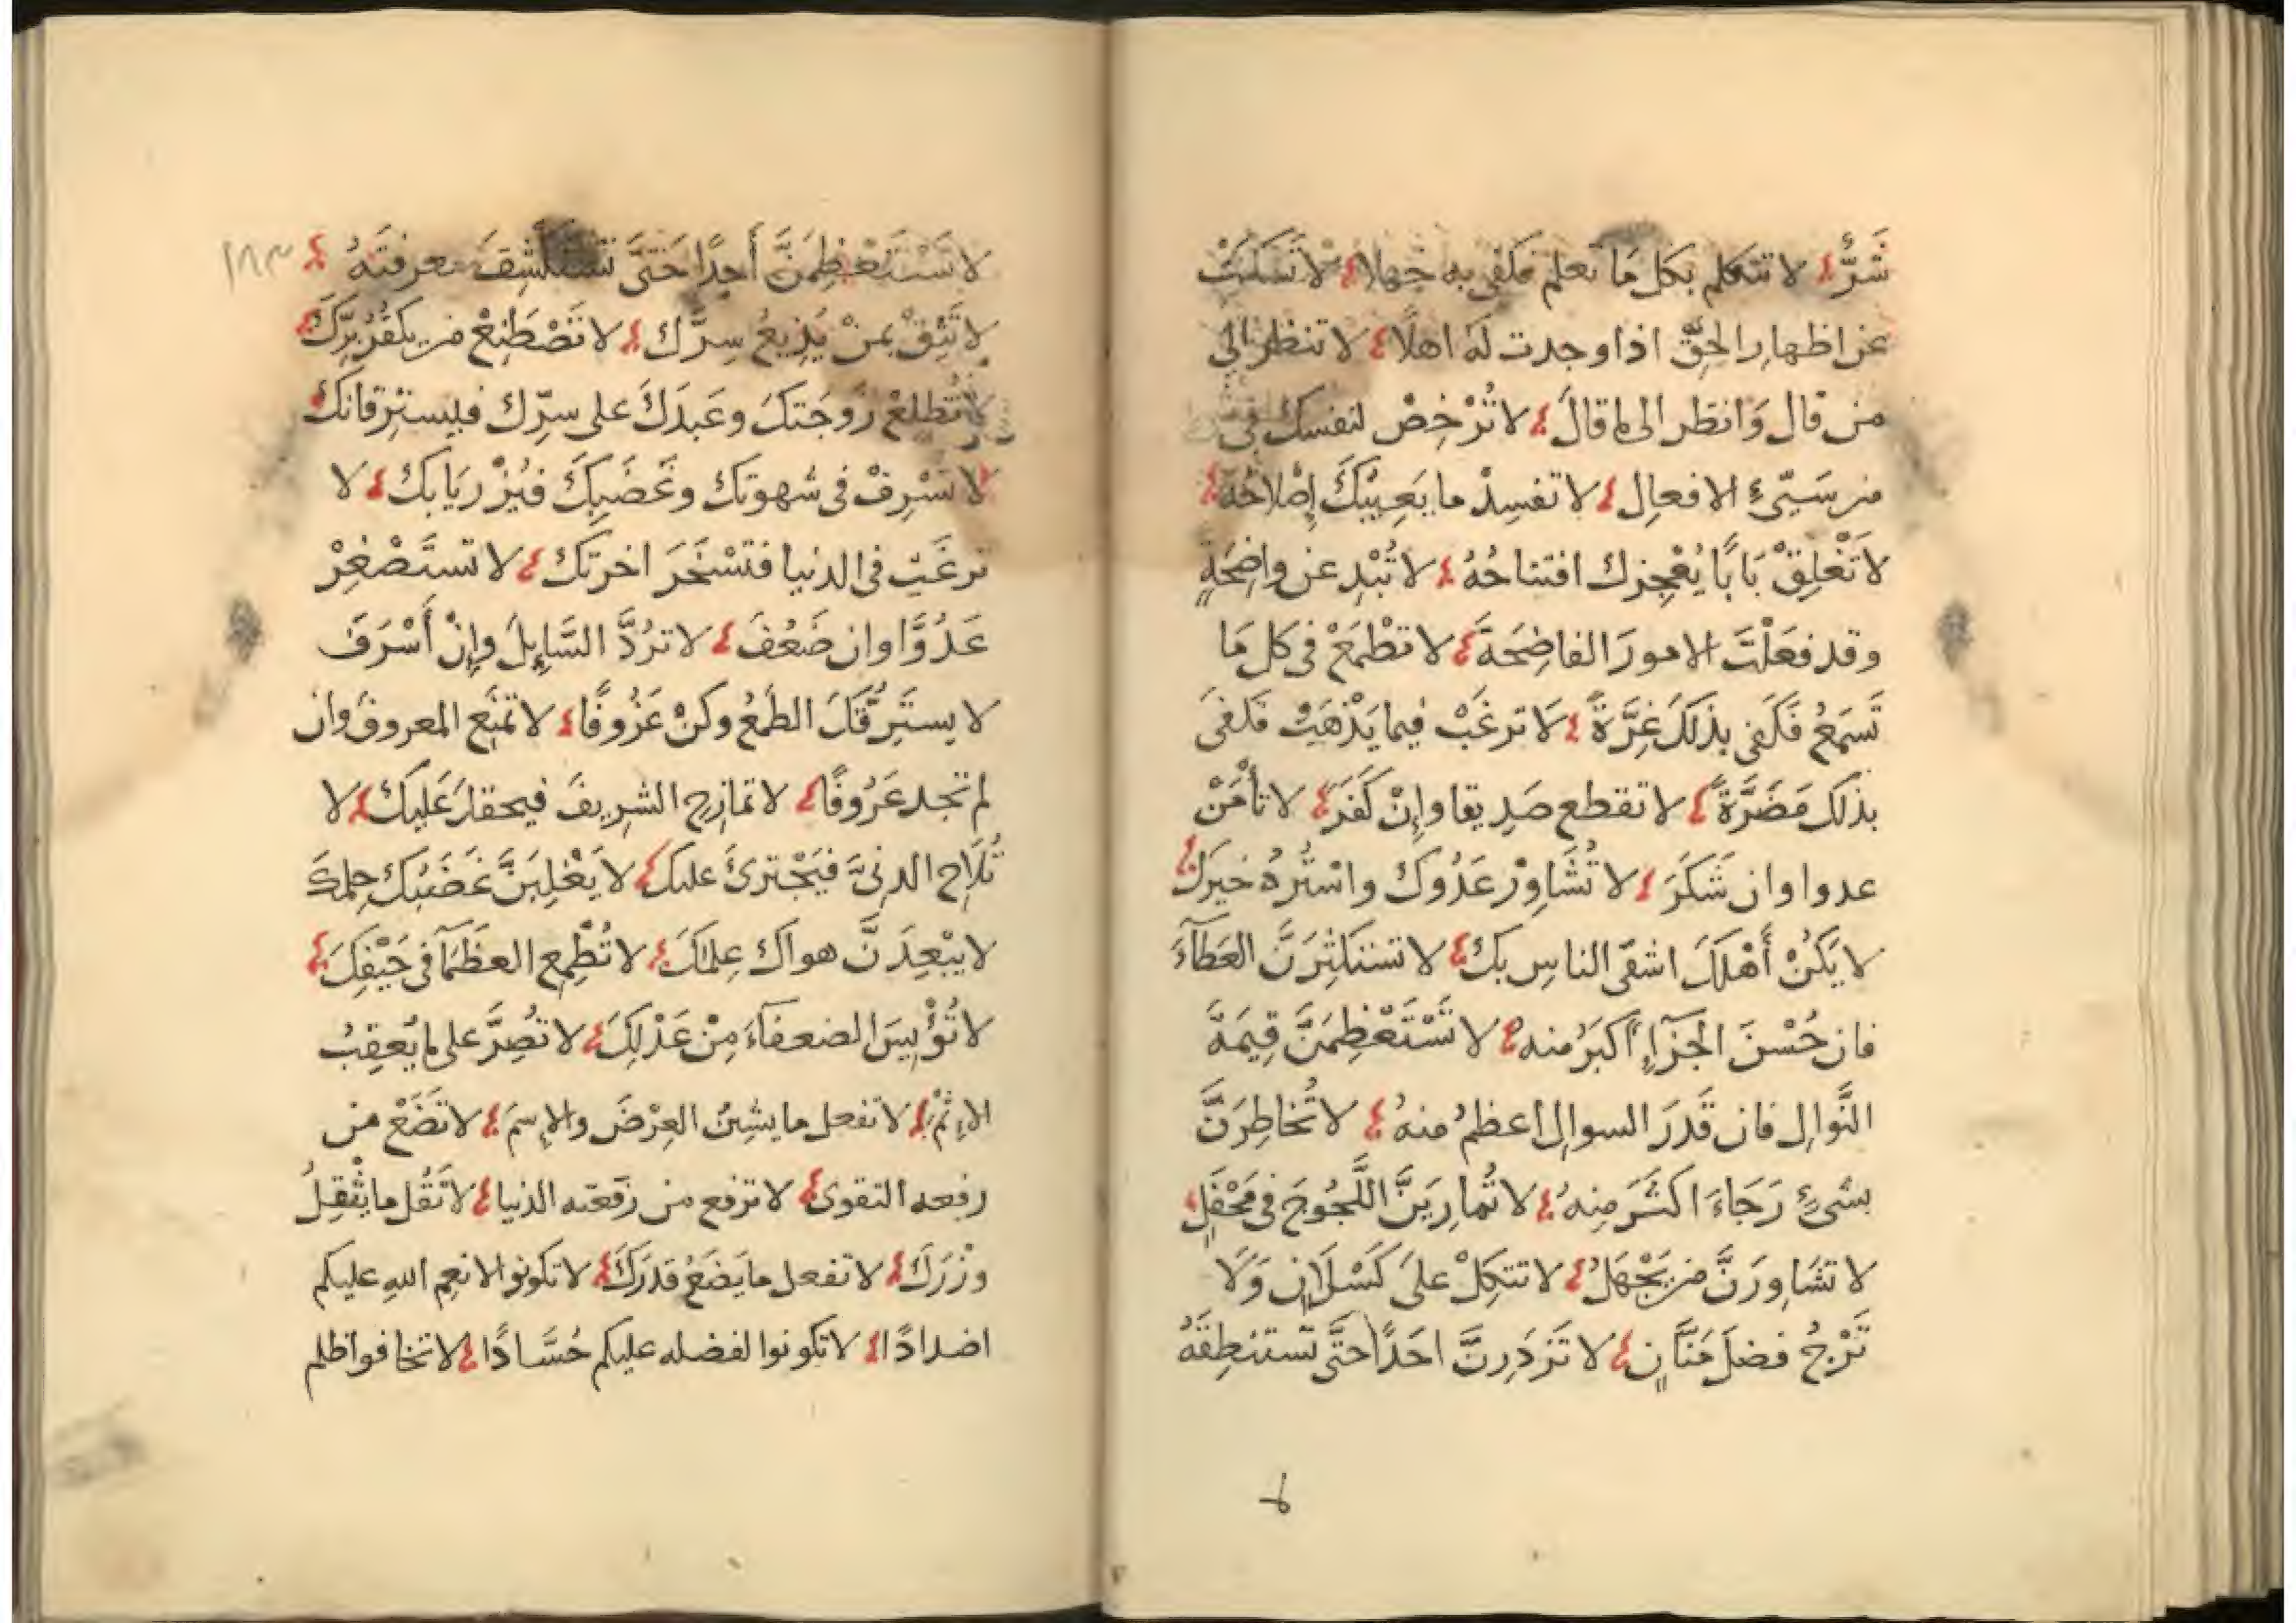 شَرٌّ لا تتكلم بكل مَا تعلم فكفى به جهلا لا تَسكتْ
عن اظهارِ الحقّ اذا وجدت لَهُ اهلًا لا تنظر الى
من قال وَانظر الى ما قالَ لا تُرْخِصْ لنفسك فى شئ
من سَيّئِ الافعالِ لا تفسِدْ ما يَعِيبُكَ إصْلاحُهُ
لا تَغْلِقْ بَابًا يُعْجِزك افتتاحُهُ لا تُبْدِ عن واضِحَةٍ
وقد فعَلْتَ الامورَ الفاضِحَةَ لا تطْمَعْ فى كل مَا
تَسمَعُ فَكَفى بذلكَ غِرَّةً لَا ترغَبْ فيما يَذْهَبُ فكفىَ
بذلك مَضَرَّةً لا تقطع صَدِيقا وإنْ كَفَرَ لا تأمَنْ
عدوا وان شَكَرَ لا تُشَاوِرْ عَدُوكَ واسْتُرهُ خبرَكَ
لا يَكُنْ أَهْلكَ اشقَى الناسِ بكَ لا تستكثِرَنَّ العَطَآءَ
فان حُسْنَ الجَزَآءِ أَكبَرُ منه لا تَسْتَعْظِمَنَّ قِيمَةَ
النَّوالِ فان قَدرَ السوالِ اعظمُ منهُ لا تُخاطِرَنَّ
بشئٍ رَجَاءَ اكثَرَ مِنهُ لا تُمارِيَنَّ اللَّجُوجَ فى مَحْفَلٍ
لا تشَاوِرَنَّ من يَجْهَلُ لا تتكِلْ علىَ كَسْلَانٍ وَلَا
تَرْجُ فضلَ مَنَّانٍ لا تَزدَرِنَّ احَدًا حتَّى تَستنطِقَهُ
لا تَسْتَعْظِمَنَّ أحدًا حَتىَّ تستكشِفَ معرفتَهُ
١٨٣
لا تَثِقْ بمنْ يُذِيعُ سِرَّكَ لا تَصْطَنِعْ من يكفُرُ بِرَّكَ
لا تُطْلِعْ زوجَتكَ وعَبدَكَ على سِرِّك فيسترِقانكَ
لا تسْرِفْ فى شهوتك وغَضَبِكَ فيُزْرِيَا بكَ لا
ترغَبْ فى الدنيا فتَسْخَرَ اخرتكَ لا تستَصْغِرْ
عَدُوًّا وان ضَعُفَ لا ترُدَّ السَّايِلَ وإنْ أَسْرَفَ
لا يستَرِقَّكَ الطَمعُ وكنْ عَزُوفًا لا تمنَع المعروفَ وان
لم تجد عَرُوفًا لا تمازِحِ الشرِيفَ فيحقدَ عَليكَ لا
تُلَاحِ الدنىَّ فيَجْترئَ عليك لا يَغْلِبَنَّ غَضَبُكَ حِلمكَ
لا يبْعِدَنَّ هواكَ عِلمكَ لا تُطْمِعِ العظَمَآ فى حَيْفِكَ
لا تُؤْيِسَ الضعفآءَ مِنْ عَدْلِكَ لا تُصِرَّ على ما يُعقِبُ
الاِثْمَ لا تفعل ما يشِينُ العِرْضَ والاِسمَ لا تَضَعْ من
رفعه التقوى لا ترفع من رَفعته الدنيا لا تَقُل ما يثْقِلُ
وزْرَكَ لا تفعل ما يَضَعُ قدرَكَ لا تكونوا لانعِم اللهِ عليكم
اضدادًا لا تكونوا لفضله عليكم حُسَّادًا لا تخافوا ظلم